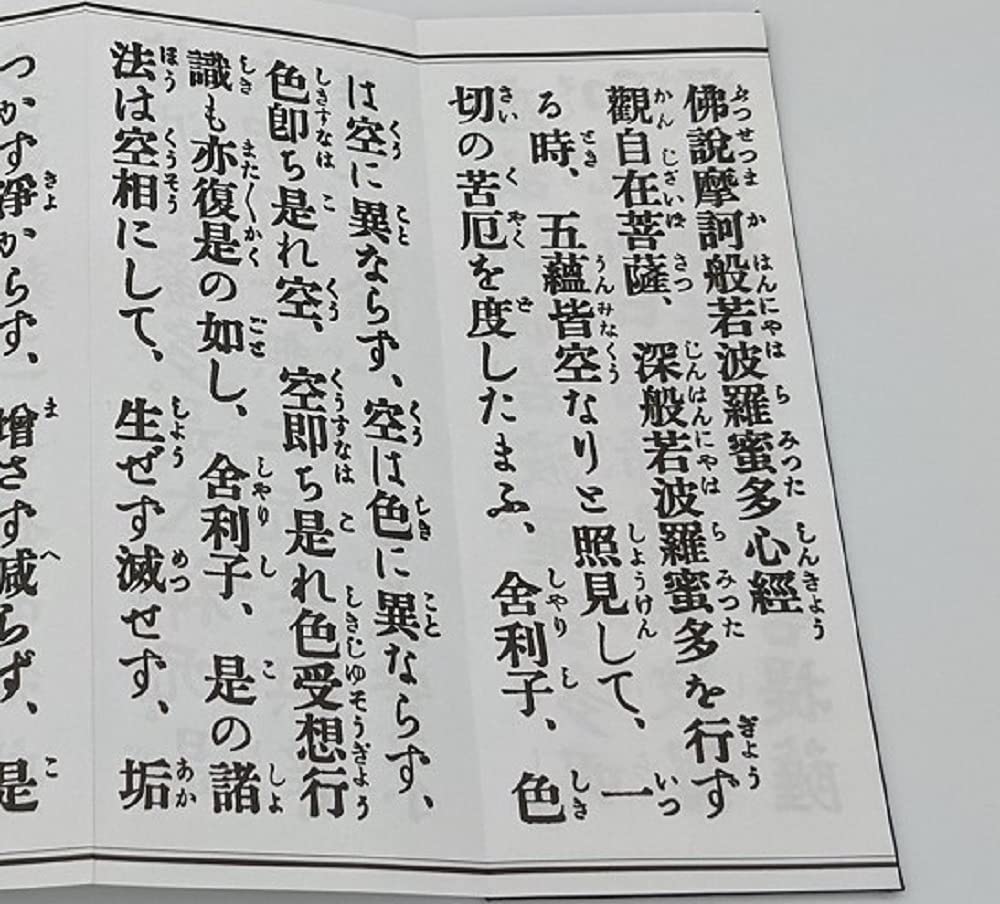 佛說摩訶般若波羅蜜多心經
觀自在菩薩、深般若波羅蜜多を行ず
る時、五蘊皆空なりと照見して、一
切の苦厄を度したまふ、舍利子、色
は空に異ならず、空は色に異ならず、
色卽ち是れ空、空卽ち是れ色受想行
識も亦復是の如し、舍利子、是の諸
法は空相にして、生ぜず滅せず、垢
つかず淨からず、增さず減らず、是